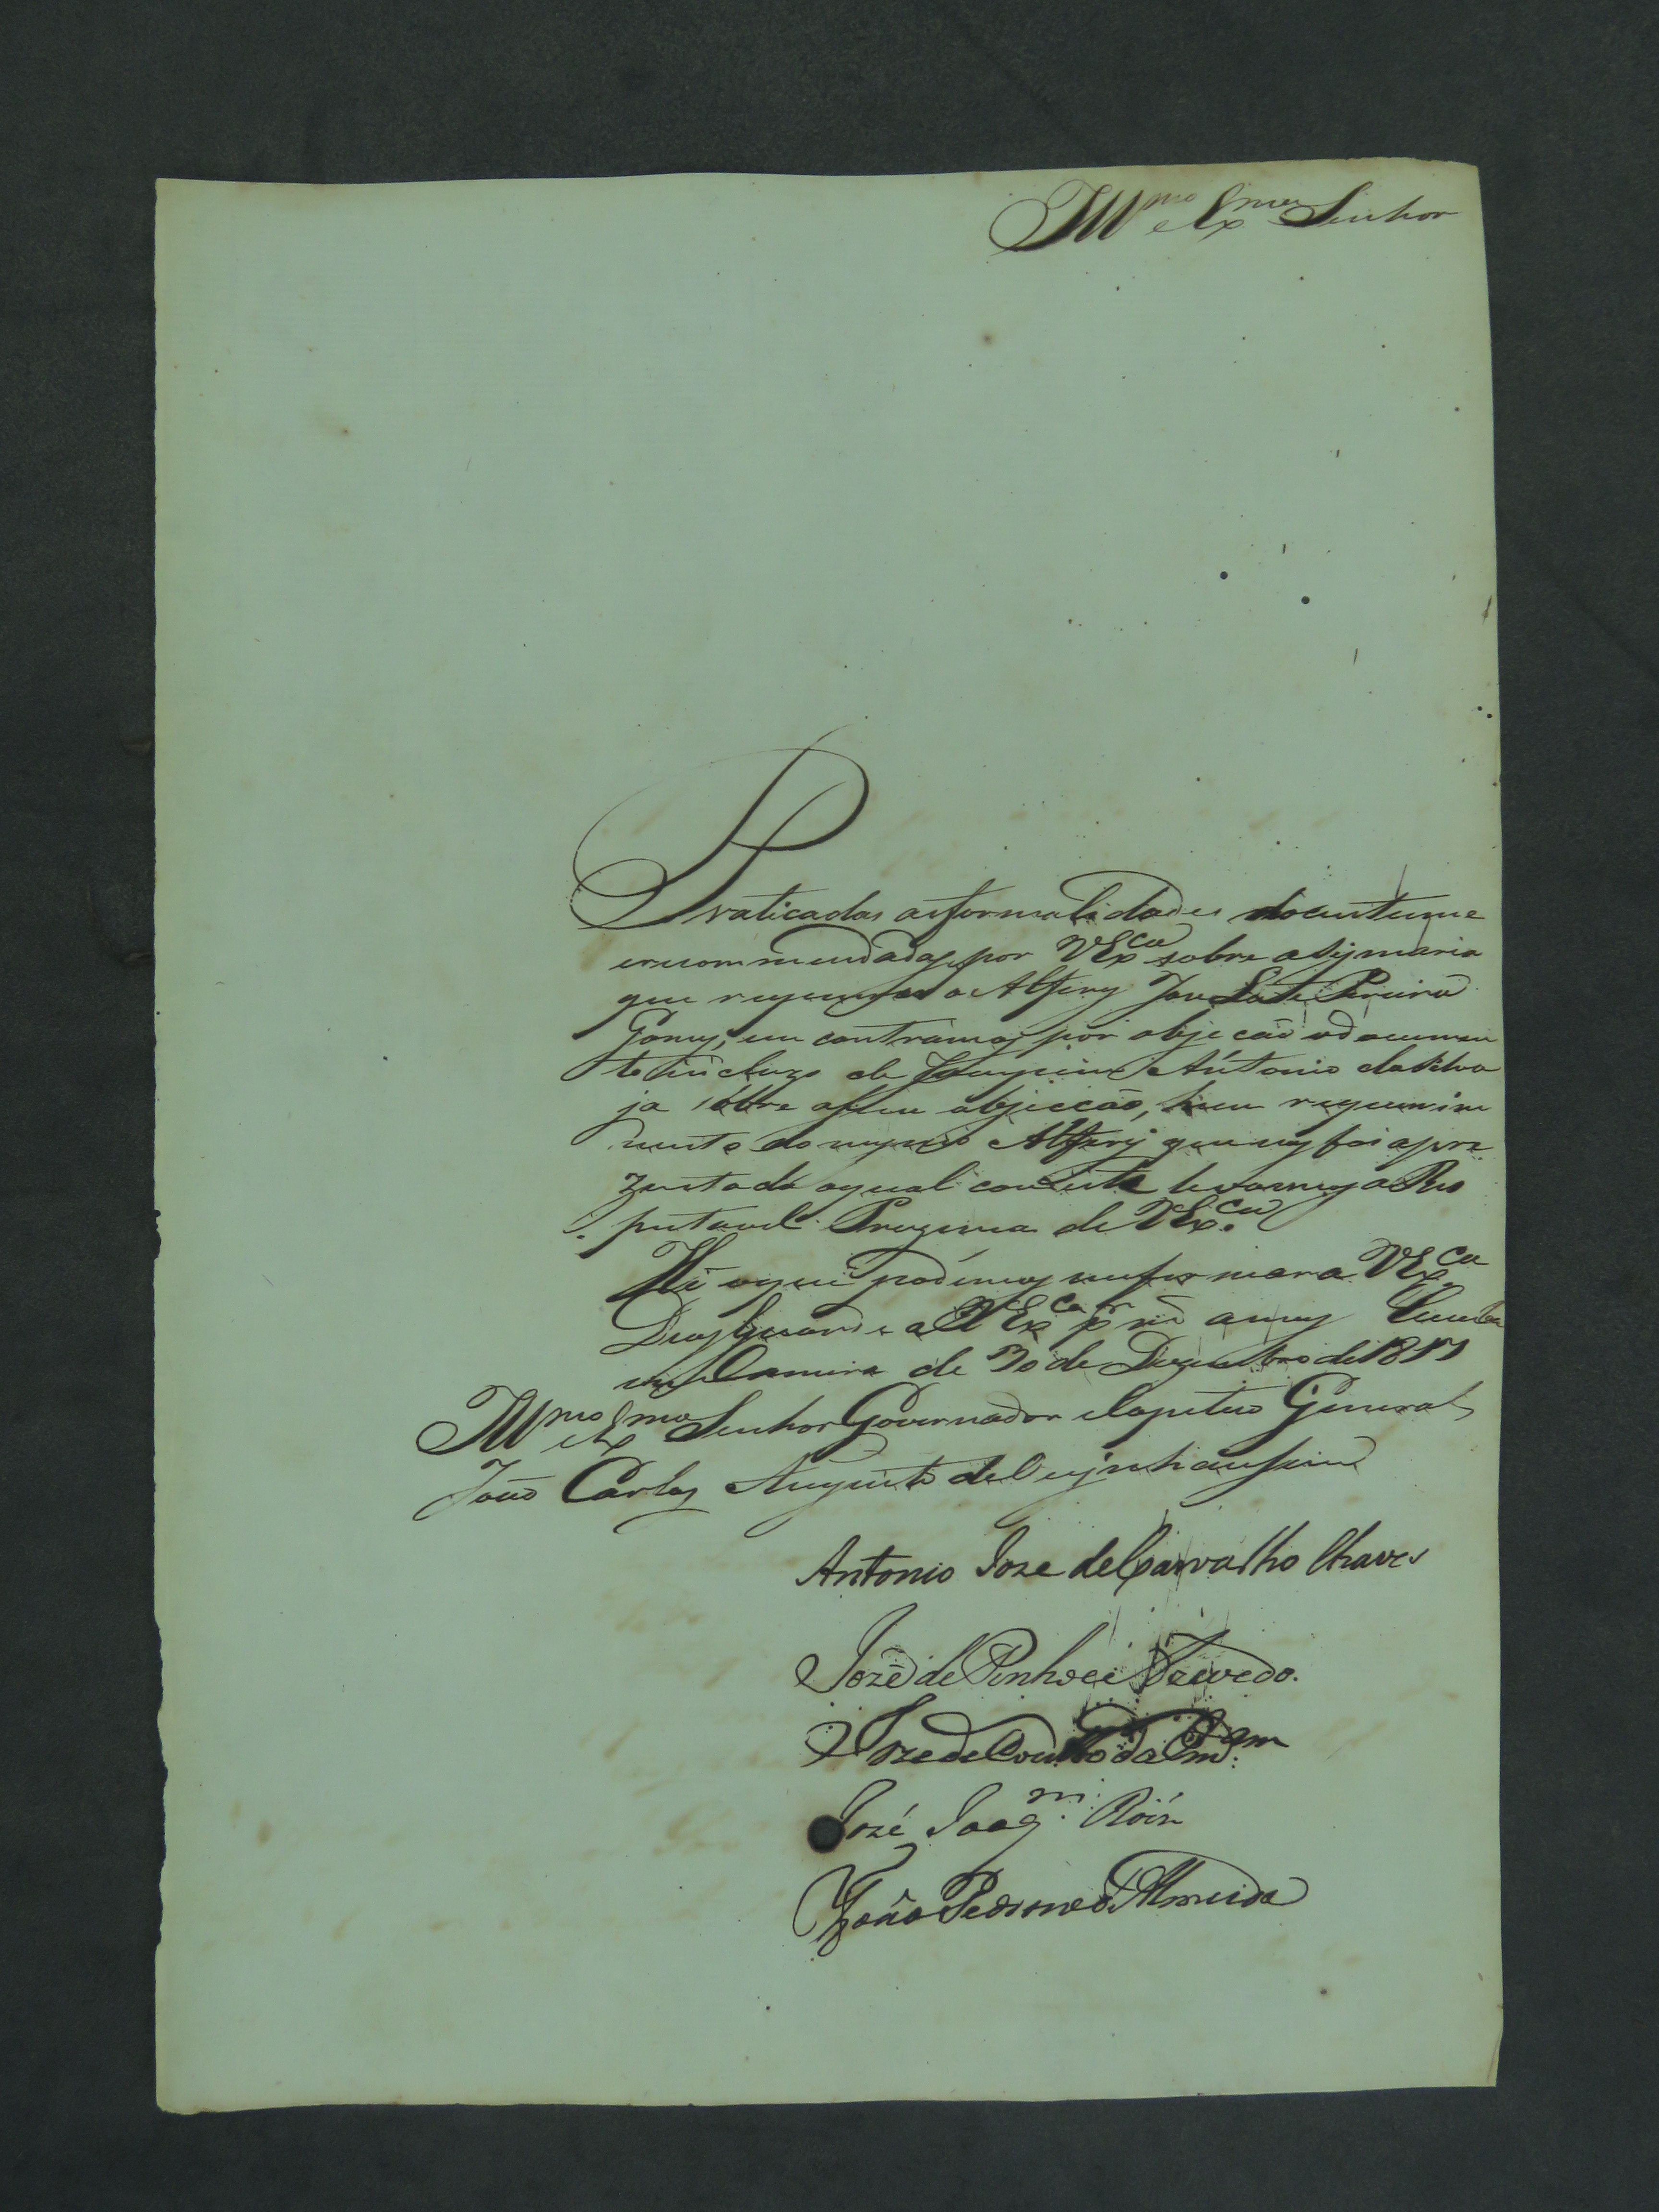 Ill^mo e Ex^mo Senhor
Praticadas as formalidades do custume
erecommendadas por VEx^ca sobre a Sysmaria
que requereo o Alferes Joze Leite Pereira
Gomes, encontramos por objecão o documen
to incluzo de Joaquim Antonio da Silva
ja sobre a seu objeccão, hum requerim
mento do mesmo Alferes que nos foi apre
zentado o qual com este levamos a Res
peitavel Prezenca de VEx.^ca
He o que podemos informar a VEx.^ca
Deos Guarde a VEx^ca p^r m^s annos Cuiaba
em Camera de 30 de Dezembro de 1817
Ill^mo e Ex^mo Senhor Governador e Capitão General
João Carlos Augusto de Oeynhausem
Antonio Joze de Carvalho Chaves
Jozé de Pinho e Azevedo.
Joze de Couto da Em^cam
Jozé Joaq^m. Roiz
João Pedrozo d'Almeida